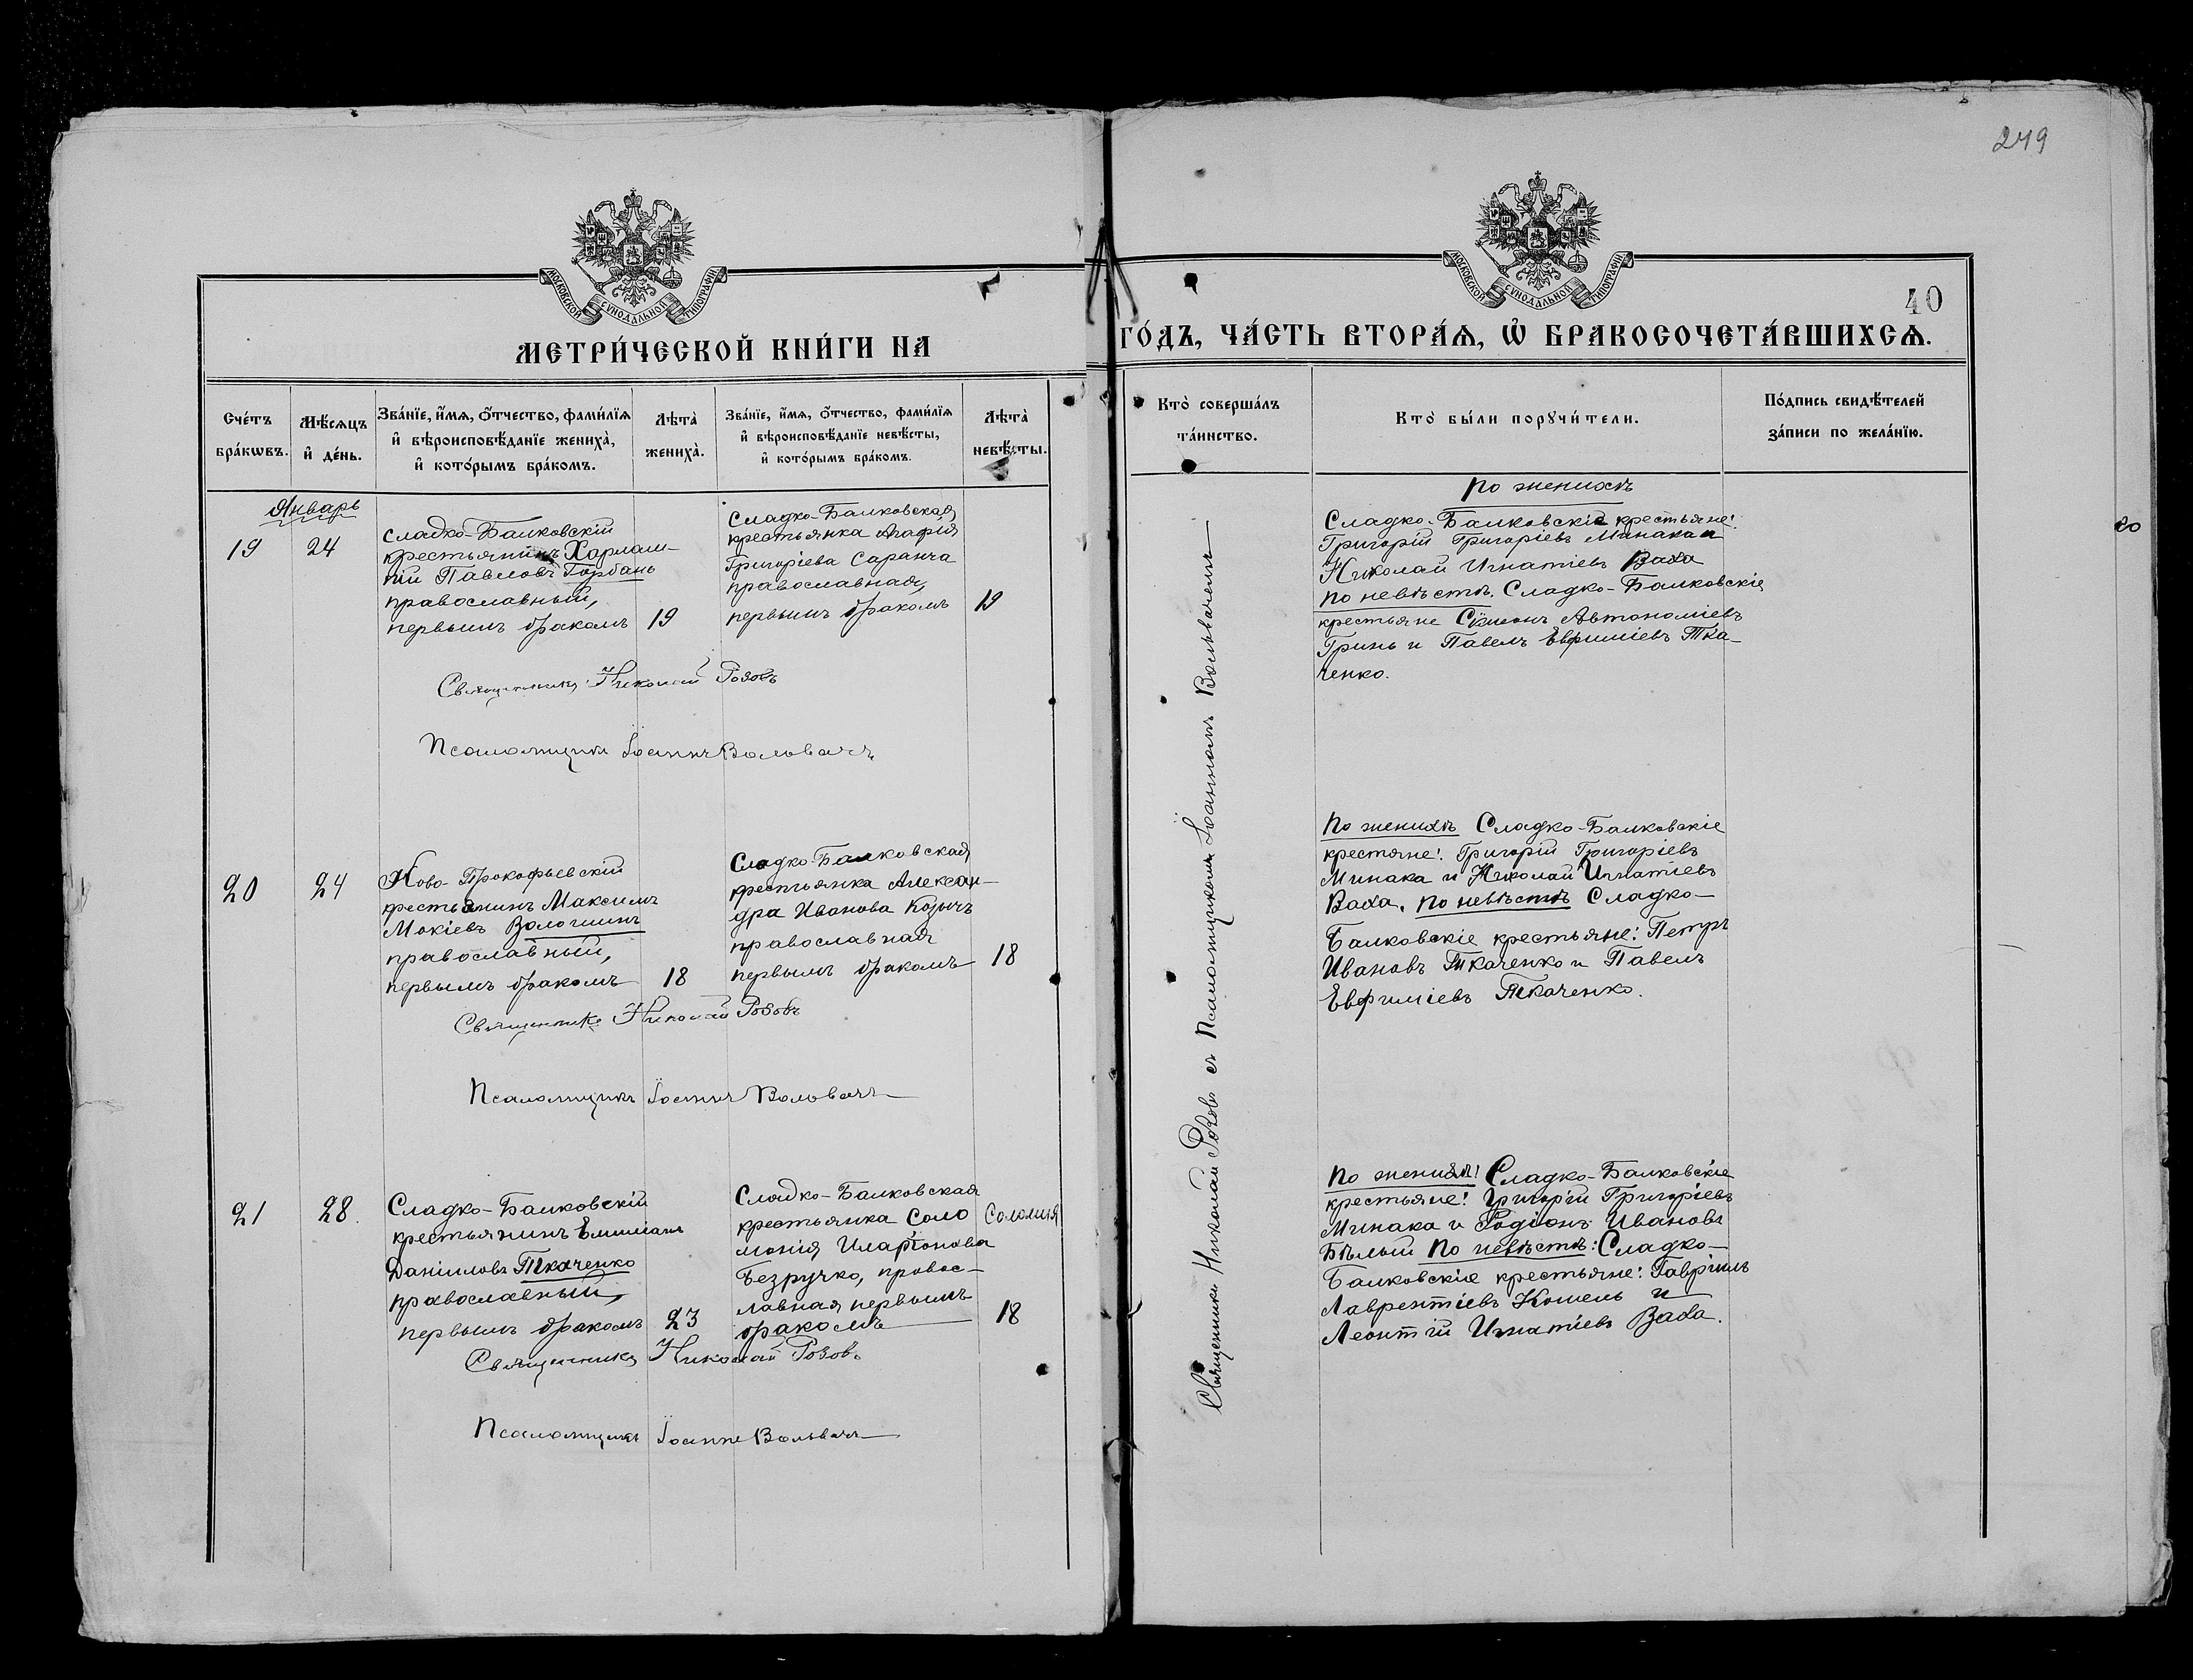 249
МОСКОВСКОЙ СУНОДАЛЬНОЙ ТИПОГРАФІИ
МОСКОВСКОЙ СУНОДАЛЬНОЙ ТИПОГРАФІИ
40
МЕТРИ́ЧЕСКОЙ КНИ́ГИ НА
ГО́ДЪ, ЧА́СТЬ ВТОРА́Я, Ѡ БРАКОСОЧЕТА́ВШИХСЯ.
Сче́тъ бра́кѡвъ.
Мѣ́сяцъ и де́нь.
Зва́нїе, и́мя, ѻ́тчество, фами́лїя и вѣроисповѣ́данїе жениха̀, и кото́рымъ бра́комъ.
Лѣта̀ жениха̀.
Зва́нїе, и́мя, ѻ́тчество, фами́лїя и вѣроисповѣ́данїе невѣ́сты, и кото́рымъ бра́комъ.
Лѣта̀ невѣ́сты.
Кто̀ соверша́лъ та́инство.
Кто̀ бы́ли порꙋчи́тели.
По́дпись свидѣ́телей за́писи по жела́нїю.
Январь
19
24
Сладко-Балковскій
крестьянинъ Харлам-
пій Павловъ Горбань
православный,
первымъ бракомъ
19
Сладко-Балковская
крестьянка Агафія
Григоріева Саранча
православная,
первымъ бракомъ
19
Священникъ Николай Розовъ
Псаломщикъ Іоаннъ Вольвачъ
по женихѣ
Сладко-Балковскіе крестьяне:
Григорій Григоріевъ Минака и
Николай Игнатіевъ Ваха
по невѣстѣ. Сладко-Балковскіе
крестьяне Сѵмеонъ Автономіевъ
Гринь и Павелъ Евфиміевъ Тка-
ченко.
20
24
Ново-Прокофьевскій
крестьянинъ Максимъ
Мокіевъ Вологинъ
православный,
первымъ бракомъ
18
Сладко-Балковская
крестьянка Алексан-
дра Иванова Козичъ
православная
первымъ бракомъ
18
Священникъ Николай Розовъ
Псаломщикъ Іоаннъ Вольвачъ
По женихѣ Сладко-Балковскіе
крестяне: Григорій Григоріевъ
Минака и Николай Игнатіевъ
Ваха. по невѣстѣ Сладко-
Балковскіе крестьяне: Петръ
Ивановъ Ткаченко и Павелъ
Евфиміевъ Ткаченко.
21
28.
Сладко-Балковскій
крестьянинъ Емиліанъ
Даніиловъ Ткаченко
православный,
первымъ бракомъ
23
Сладко-Балковская
крестьянка Соло
монія Иларіонова
Безручко, провос-
лавная первымъ
бракомъ
Соломія
18
Священникъ Николай Розовъ
Псаломщикъ Іоаннъ Вольвачъ
По женихѣ: Сладко-Балковскіе
крестьяне: Григорій Григоріевъ
Минака и Родіонъ Ивановъ
Бѣлый По невѣстѣ: Сладко-
Балковскіе крестьяне: Гавріилъ
Лаврентіевъ Кошель и
Леонтій Игнатіевъ Ваха.
Священникъ Николай Розовъ съ Псаломщикомъ Іоанномъ Вольвачемъ